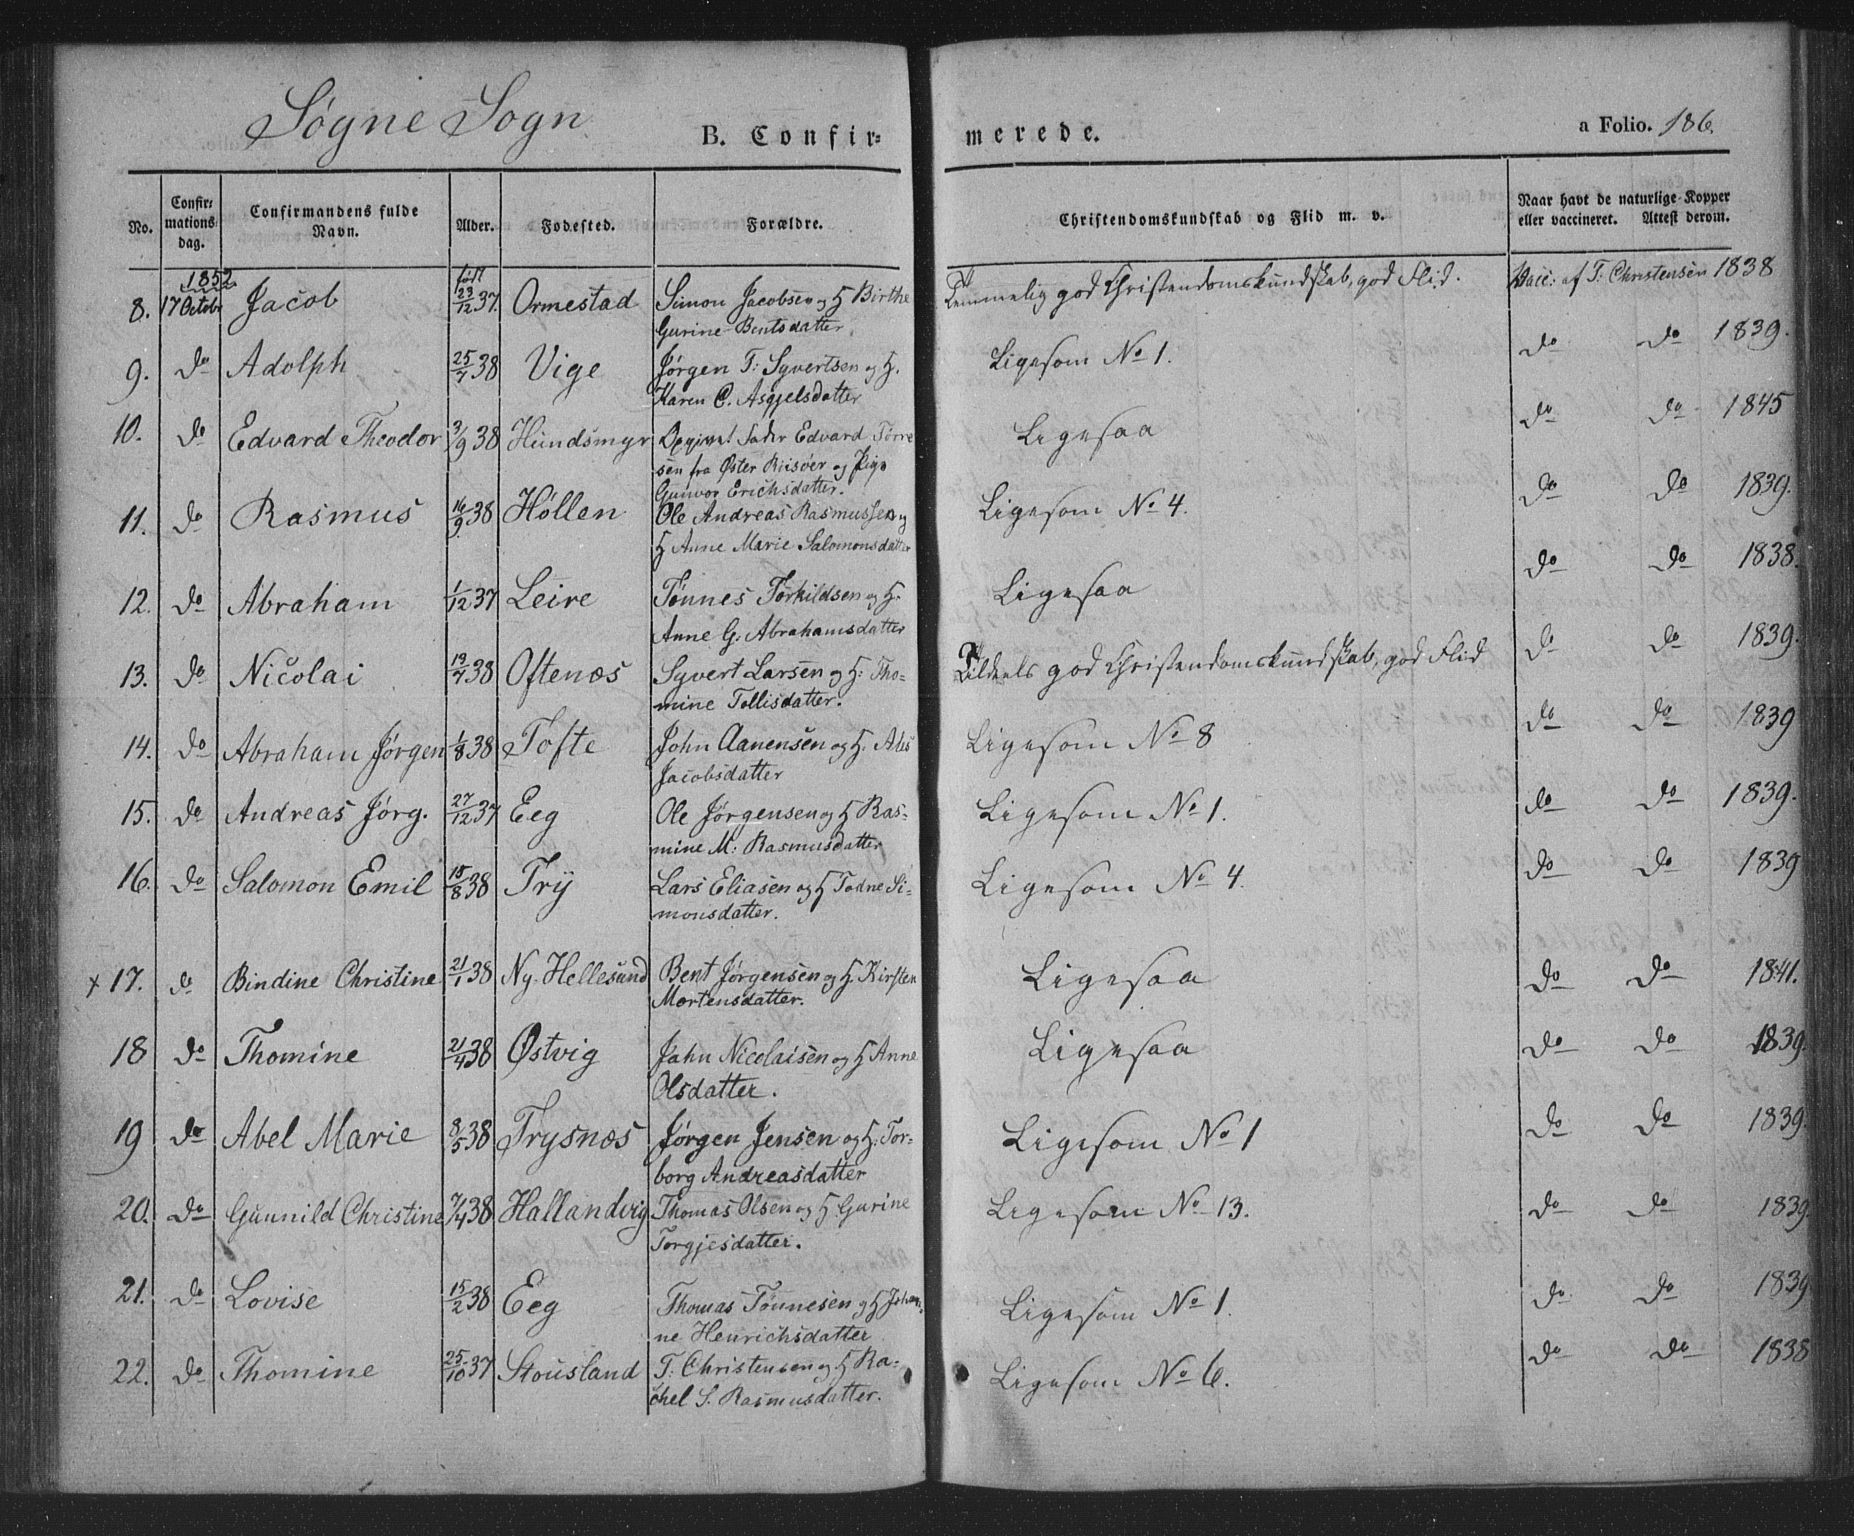 Søgne Sogn
B. Confirmerede. a Folio. 186.
No. Confirmations dag. Confirmandens fulde Navn. Alder. Fødested. Forældre. Christendomskundskab og Flid m. v. Naar havt de naturlige Kopper eller vaccineret. Attest derom.
8. 1852 17 Octobr Jacob født 23/12 37 Ormestad Simon Jacobsen og H Birthe Temmelig god Christendomskundskab, god Flid. Vacc: af T. Christensen 1838
Gurine Bentsdatter
9. do Adolph 25/7 38 Vige Jørgen T: Syvertsen og H. Ligesom No 1. do do 1839.
Karen C. Asgjelsdatter
10. do Edvard Theodor 3/9 38 Hundsmyr Opgivet Fader Edvard Torre Ligesaa do do 1845
sen fra Øster Riisøer og Pige
Gunvor Erichsdatter.
11. do Rasmus 16/9 38 Høllen Ole Andreas Rasmussen og Ligesom No 4. do do 1839.
H Anne Marie Salomonsdatter
12. do Abraham 1/12 37 Leire Tønnes Torkildsen og H. Ligesaa do do 1838.
Anne G. Abrahamsdatter
13. do Nicolai 19/7 38 Oftenæs Syvert Larsen og H. Tho- Tildeels god Christendomskundskab, god Flid do do 1839.
mine Tollisdatter.
14. do Abraham Jørgen 1/8 38 Tofte John Aanensen og H. Ales Ligesom No 8 do do 1839
Jacobsdatter
15. do Andreas Jørg. 27/12 37 Eeg Ole Jørgensen og H Ras- Ligesom No 1. do do 1839.
mine M: Rasmusdatter
16. do Salomon Emil 15/8 38 Trÿ Lars Eliasen og H Todne Si- Ligesom No 4. do do 1839
monsdatter.
x 17. do Bindine Christine 21/1 38 Ny-Hellesund Bent Jørgensen og H Kirsten Ligesaa do do 1841.
Mortensdatter.
18 do Thomine 21/4 38 Østvig John Nicolaisen og H Anne Ligesaa do do 1839.
Olsdatter.
19 do Abel Marie 8/5 38 Trysnæs Jørgen Jensen og H. Tor- Ligesom No 1 do do 1839.
borg Andreasdatter
20. do Gunnild Christine 7/4 38 Hallandvig Thomas Olsen og H Gurine Ligesom No 13. do do 1839.
Torgjesdatter.
21. do Lovise 15/2 38 Eeg Thomas Tønnesen og H Johan- Ligesom No 1. do do 1839
ne Henrichsdatter
22. do Thomine 25/10 37 Stousland T: Christensen og H Ra- Ligesom No 6. do do 1838
chel S. Rasmusdatter.